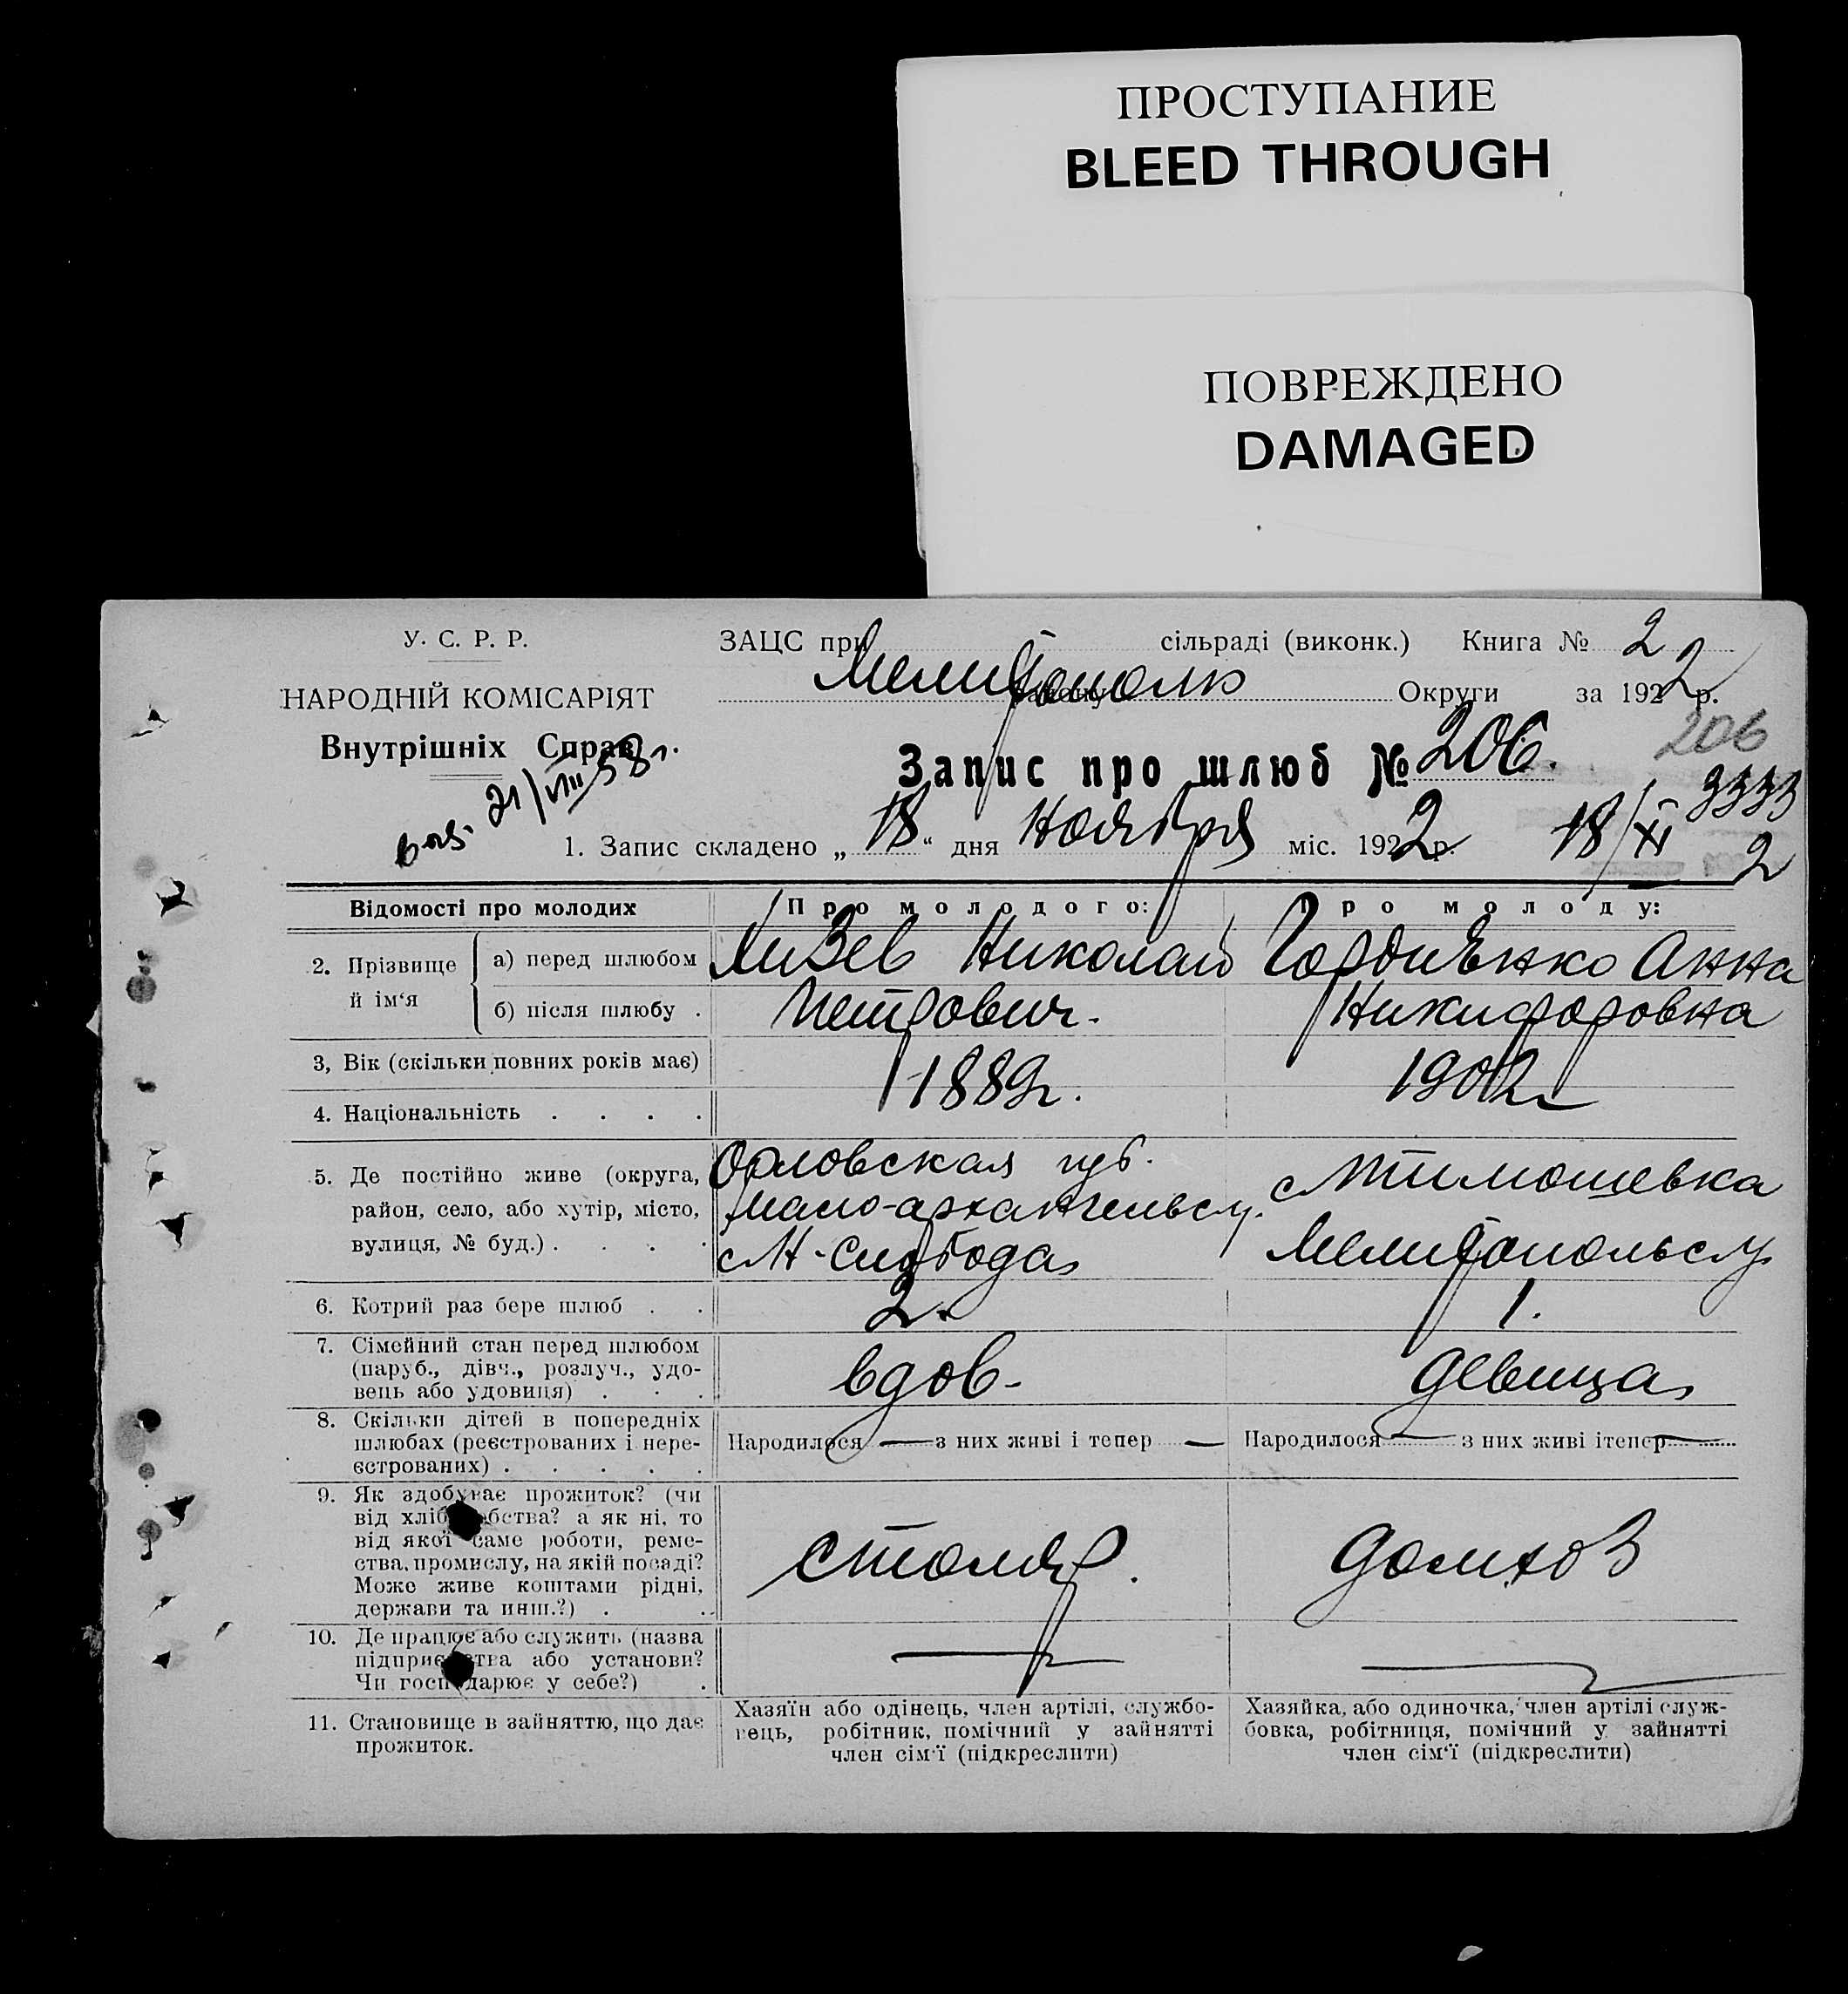 ПРОСТУПАНИЕ
BLEED THROUGH
ПОВРЕЖДЕНО
DAMAGED
У. С. Р. Р.
НАРОДНІЙ КОМІСАРІЯТ
Внутрішніх Справ
21/VIII 58г.
ЗАЦС при сільраді (виконк.) Книга № 2
Мелитополь Округи за 1922 р.
206
Запис про шлюб № 206.
3333
1. Запис складено „18“ дня Ноября міс. 1922 р. 18/XI 2
Відомості про молодих Про молодого: Про молоду:
2. Прізвище й ім‘я
а) перед шлюбом
б) після шлюбу .
Николай
Петрович.
Гордиенко Анна
Никифоровна
3, Вік (скільки повних років має) 1889г. 1902г
4. Національність . . . .
5. Де постійно живе (округа,
район, село, або хутір, місто,
вулиця, № буд.) . . . .
Орловская губ.
Мало-архангельск у.
с Н-Слобода
с Тимошевка
Мелитопольск у
6. Котрий раз бере шлюб . . 2. 1.
7. Сімейний стан перед шлюбом
(паруб., дівч., розлуч., удо-
вець або удовиця) . . .
вдов-
девица
8. Скільки дітей в попередніх
шлюбах (реєстрованих і нере-
єстрованих) . . . . .
Народилося — з них живі і тепер —
Народилося — з них живі ітепер —
9. Як здобуває прожиток? (чи
від хліб бства? а як ні, то
від якої саме роботи, реме-
ства, промислу, на якій посаді?
Може живе коштами рідні,
держави та инш.?) . .
столяр.
домхоз
10. Де працює або служить (назва
підприє ства або установи?
Чи господарює у себе?) .
11. Становище в зайняттю, що дає
прожиток.
Хазяїн або одінець, член артілі, службо-
вець, робітник, помічний у зайнятті
член сім‘ї (підкреслити)
Хазяйка, або одиночка, член артілі служ-
бовка, робітниця, помічний у зайнятті
член сім‘ї (підкреслити)